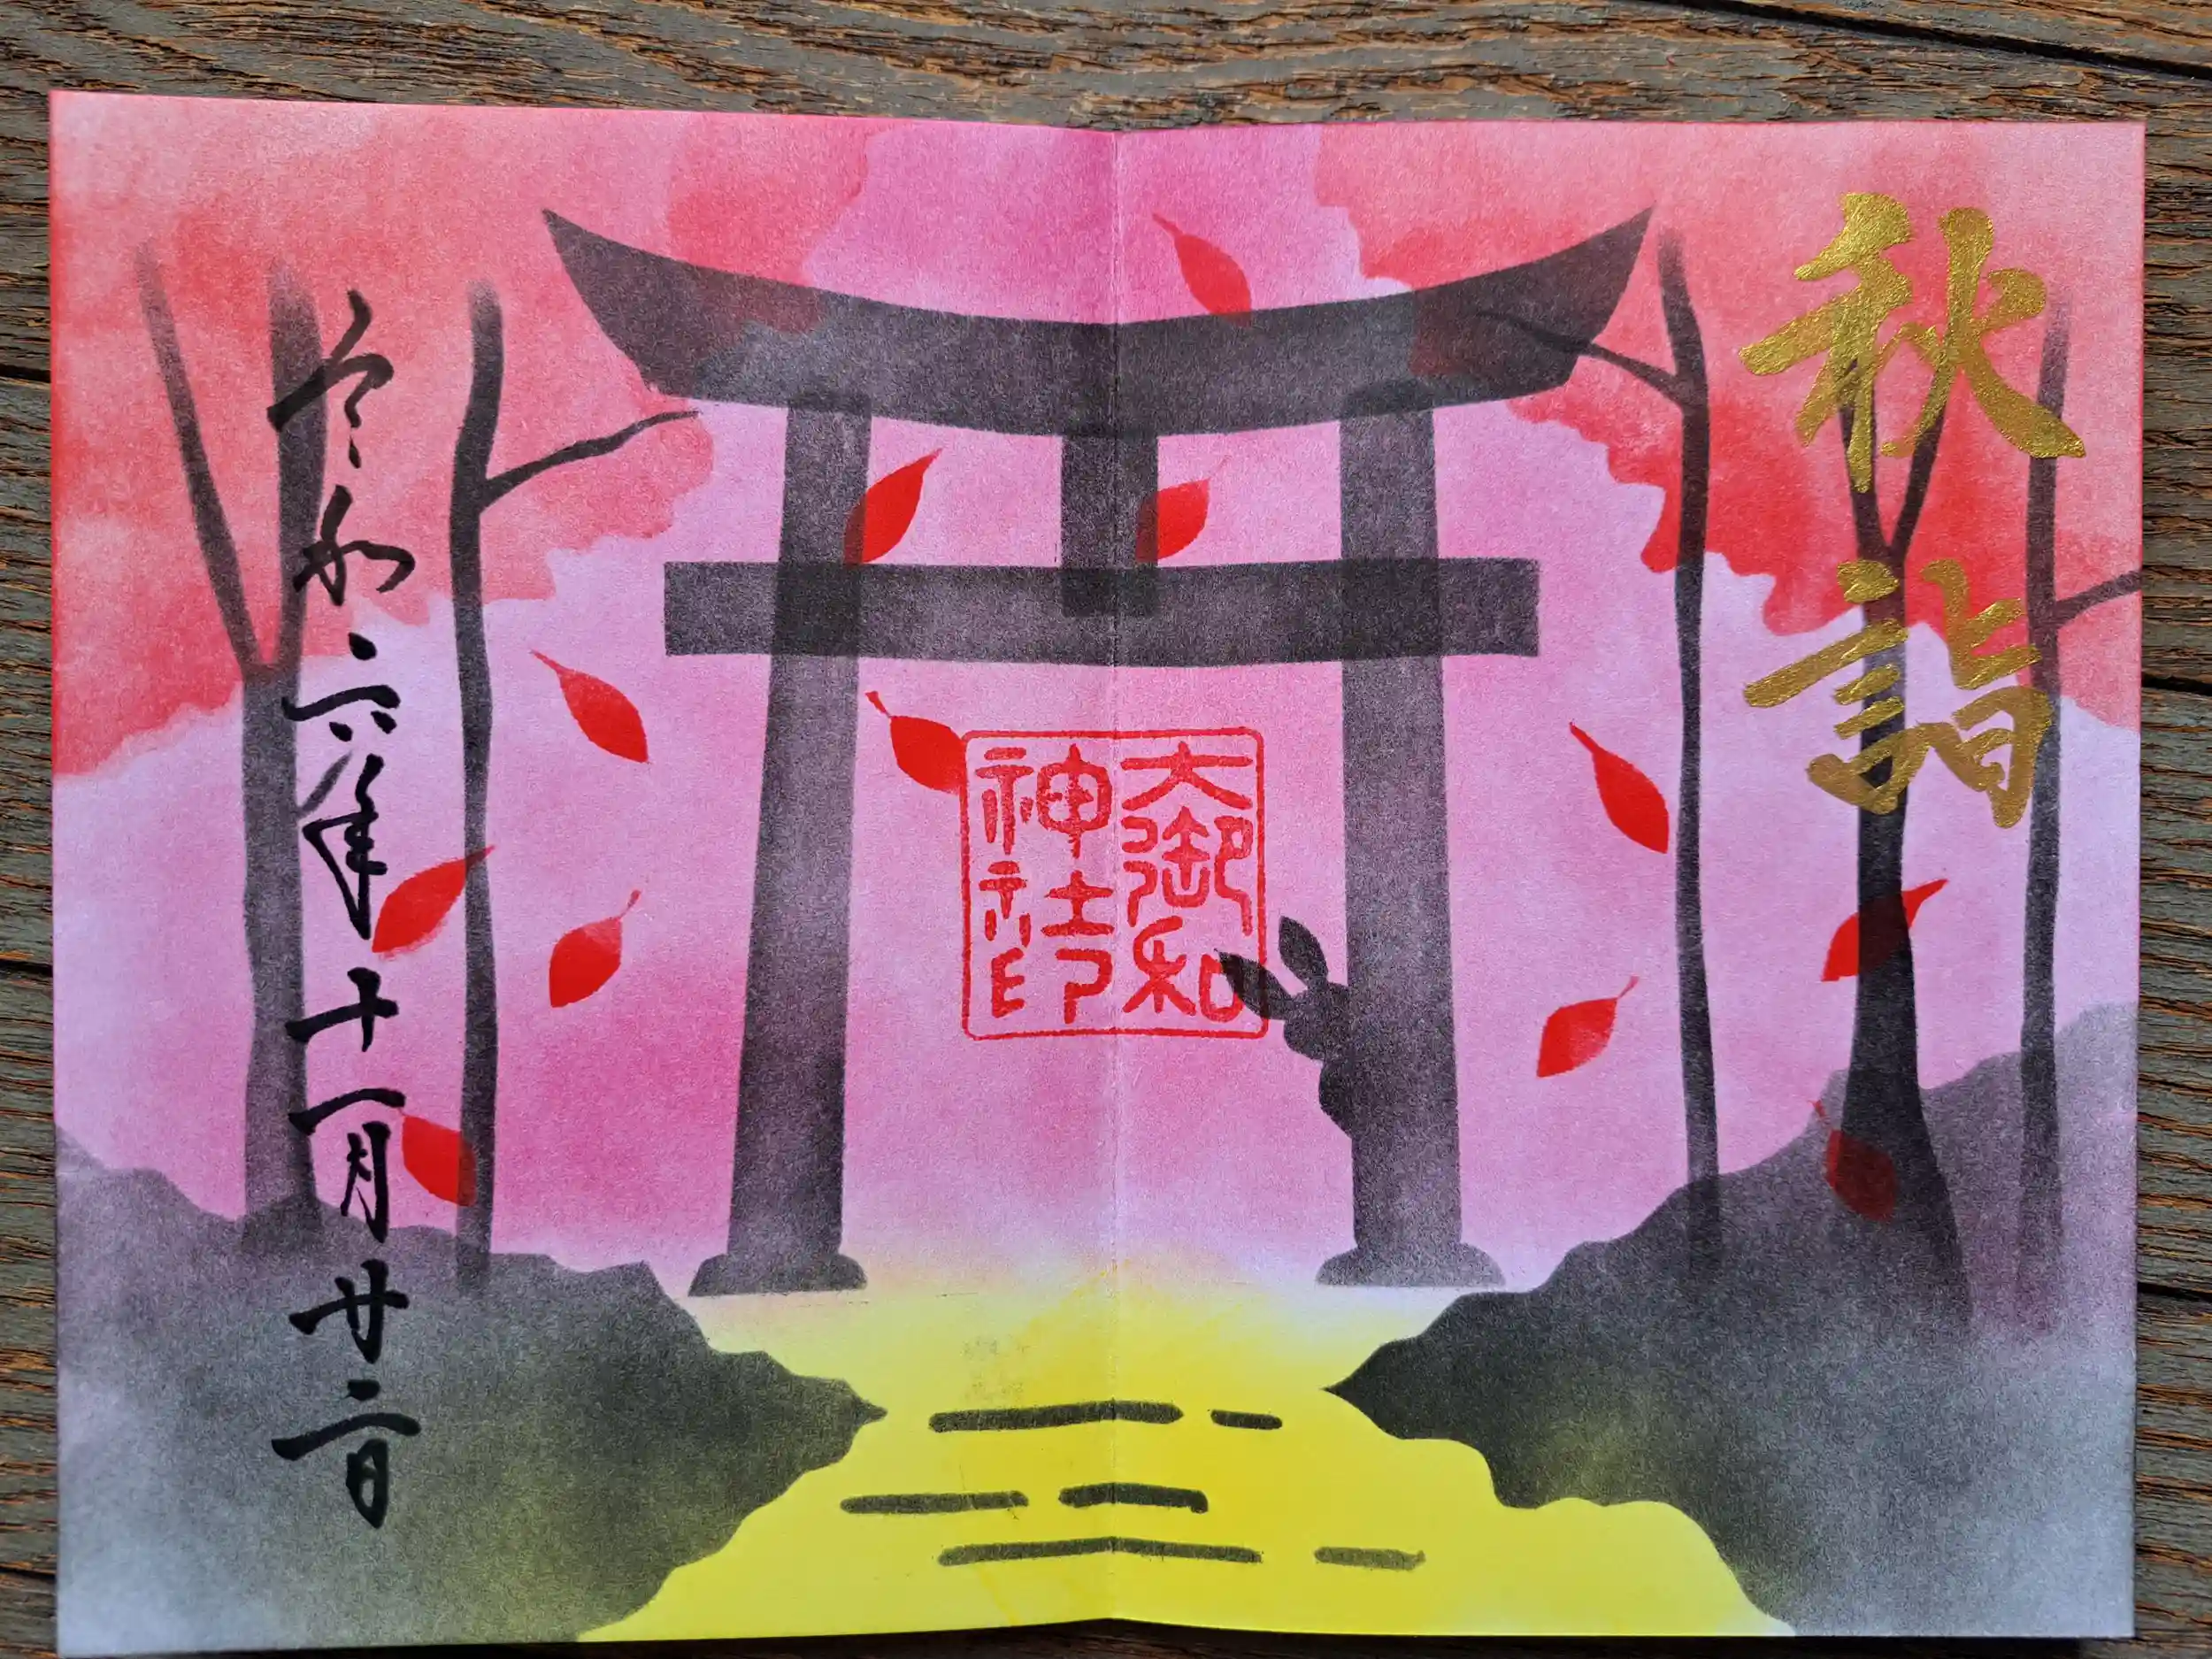 秋詣
大御和
神社印
令和六年十一月廿二日